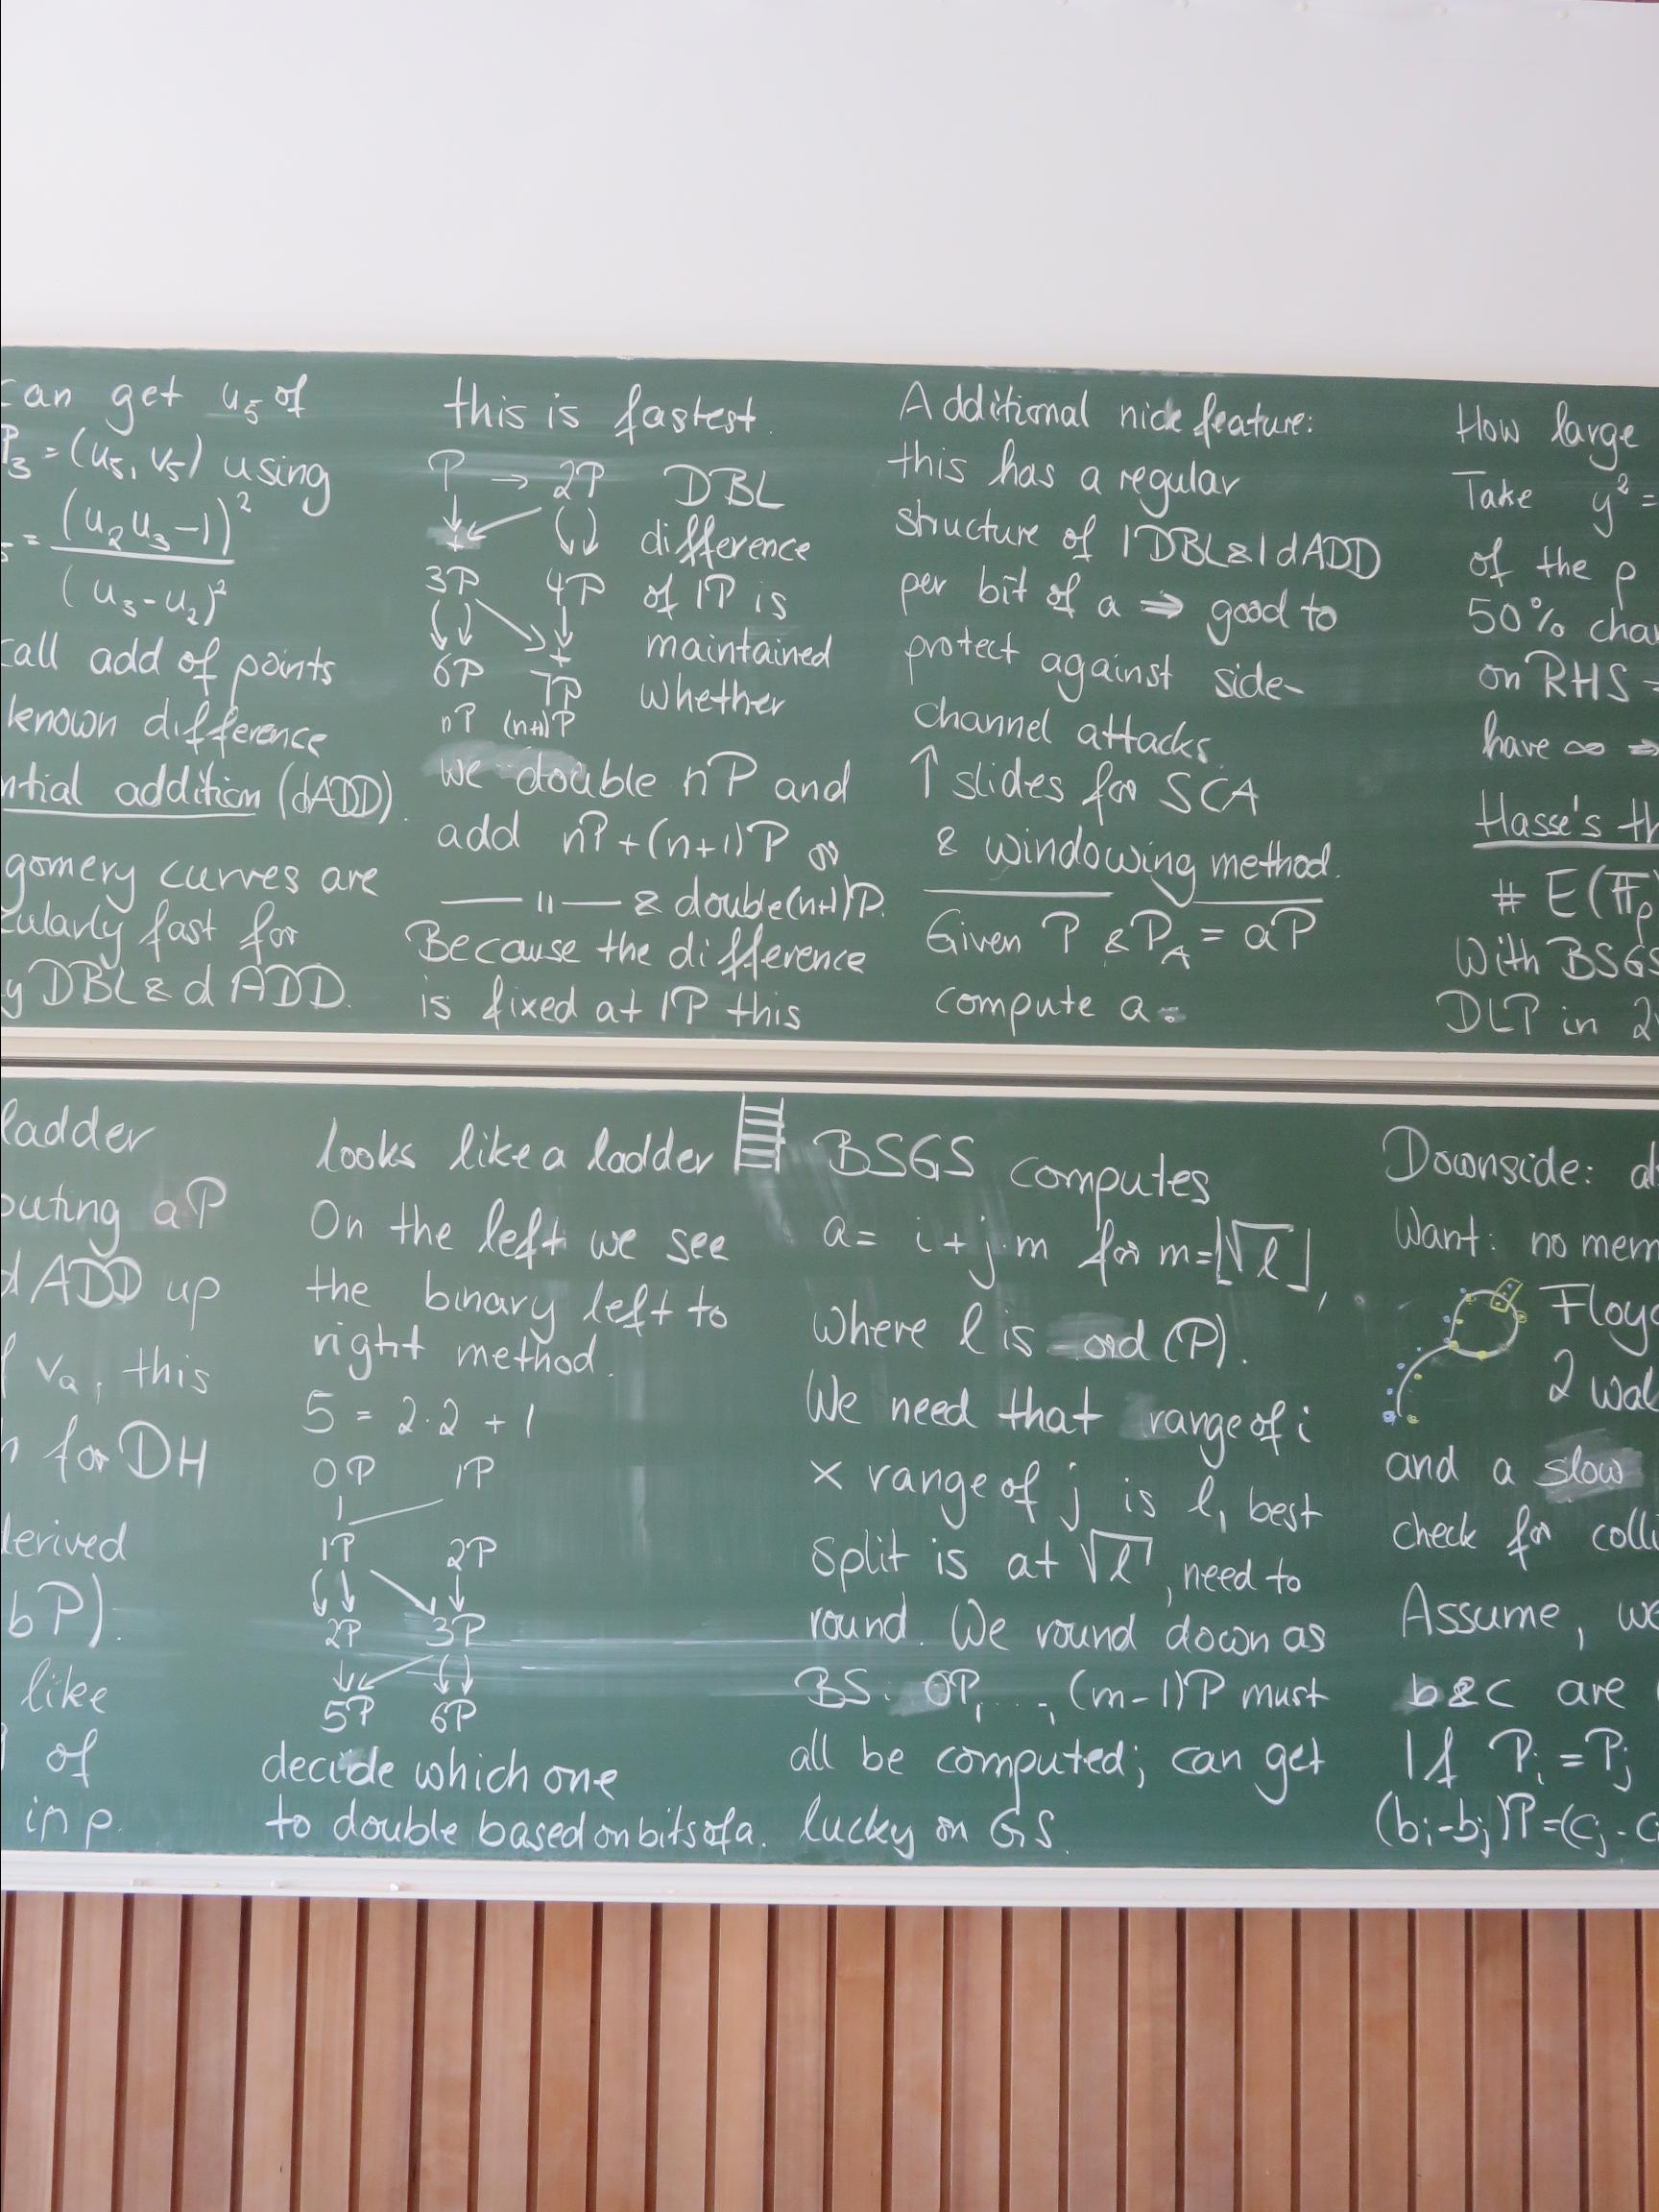 can get u₅ of
P₃ = (u₅, v₅) using
₅ = (u₂u₃-1)²
(u₃-u₂)²
call add of points
known difference
ntial addition (dADD).
gomery curves are
cularly fast for
y DBL & dADD.
this is fastest.
P → 2P DBL
+ difference
3P 4P of 1P is
+ maintained
6P 7P whether
nP (n+1)P
we double nP and
add nP+(n+1)P or
— " — & double (n+1)P.
Because the difference
is fixed at 1P this
Additional nice feature:
this has a regular
structure of 1DBL & 1dADD
per bit of a ⇒ good to
protect against side-
channel attacks.
↑ slides for SCA
& windowing method.
Given P & P_A = aP
compute a.
How large
Take y² =
of the p
50% chan
on RHS =
have ∞ ⇒
Hasse's th
# E(𝔽p)
With BSGS
DLP in 2
ladder
puting aP
dADD up
f vₐ, this
n for DH
derived
bP).
like
of
in p.
looks like a ladder
On the left we see
the binary left to
right method.
5 = 2·2 + 1
0P 1P
1P 2P
2P 3P
5P 6P
decide which one
to double based on bits of a.
BSGS computes
a = i + j·m for m=⌊√l⌋,
where l is ord (P).
We need that range of i
× range of j is l, best
split is at √l, need to
round. We round down as
BS: 0P, ..., (m-1)P must
all be computed; can get
lucky on GS.
Downside: al
Want: no mem
Floyd
2 wal
and a slow
check for colli
Assume, we
b & c are
If Pᵢ = Pⱼ
(bᵢ-bⱼ)P=(cⱼ-cᵢ